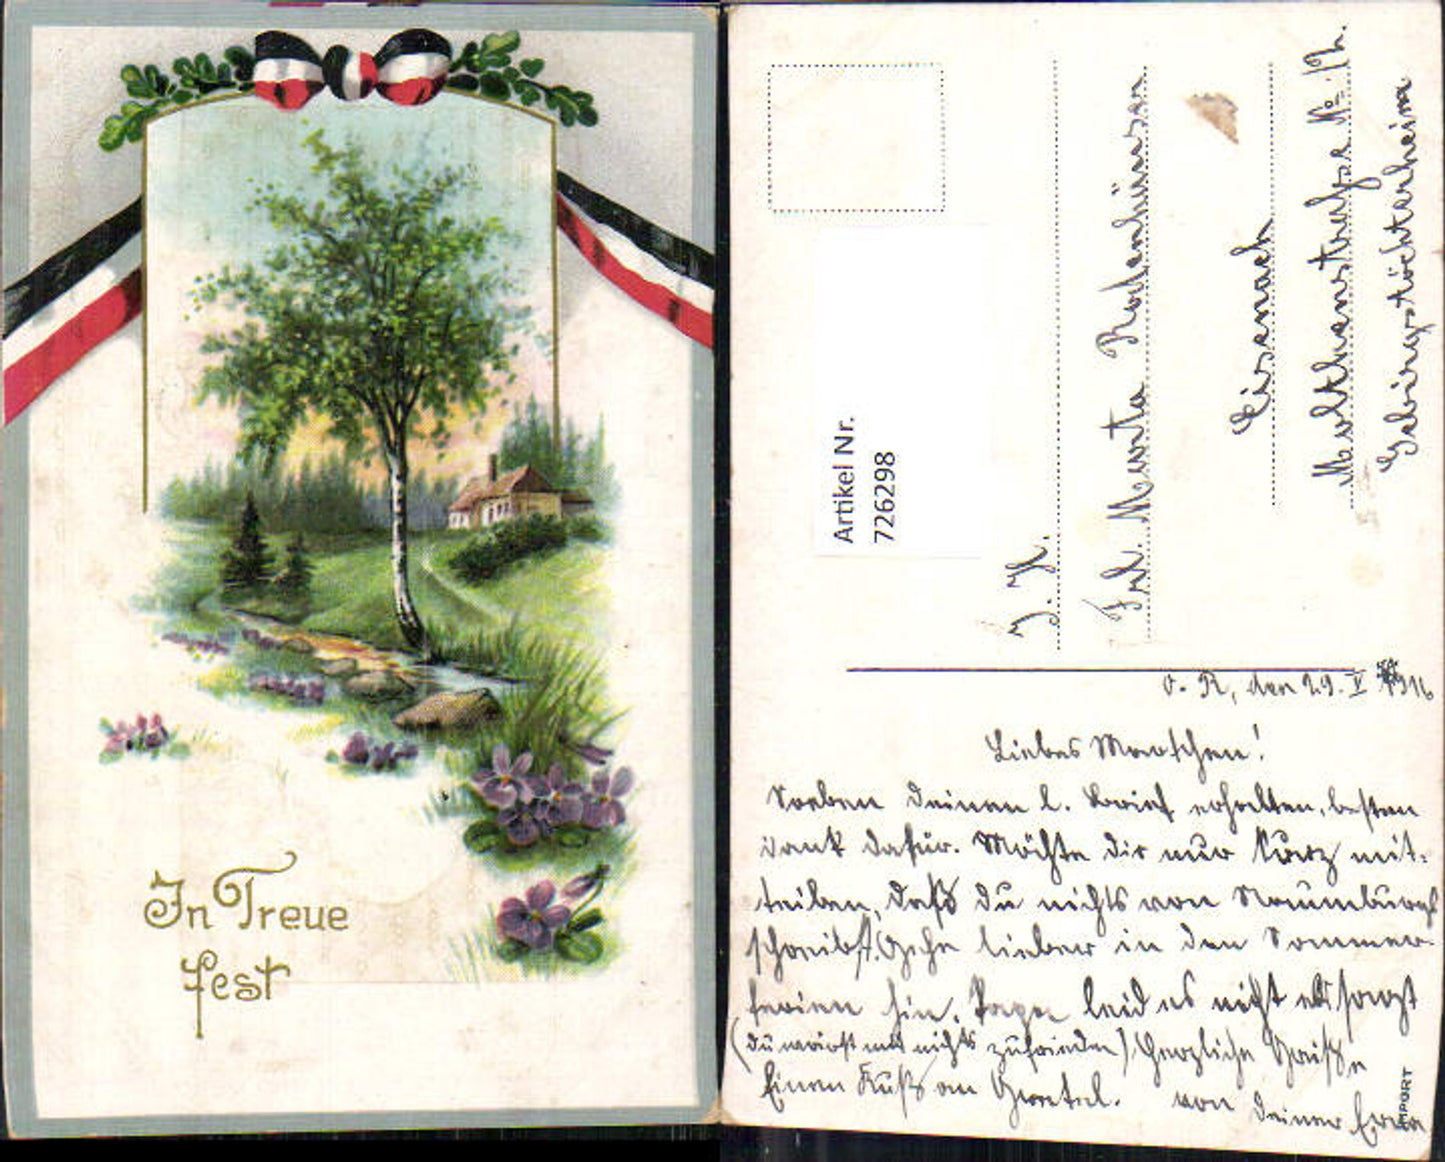 In Treue
fest
Artikel Nr.
726298
J. H.
Frl. Marta Rodenhüser
Eisenach
Molthanstraße No
Gebirgstöchterheim
O. R, den 29. V 1916
Liebes Marschen!
Soeben deinen l. Brief erhalten, besten
dank dafür. Möchte dir nur kurz mit-
teilen, daß du nichts von Naumburg
schreibst. Gehe lieber in den Sommer-
ferien hin. Papa leid es nicht
(du wirst mit nichts zufrieden) Herzliche Grüße
Einen Kuß an Gretel. von deiner Erna
IMPORT